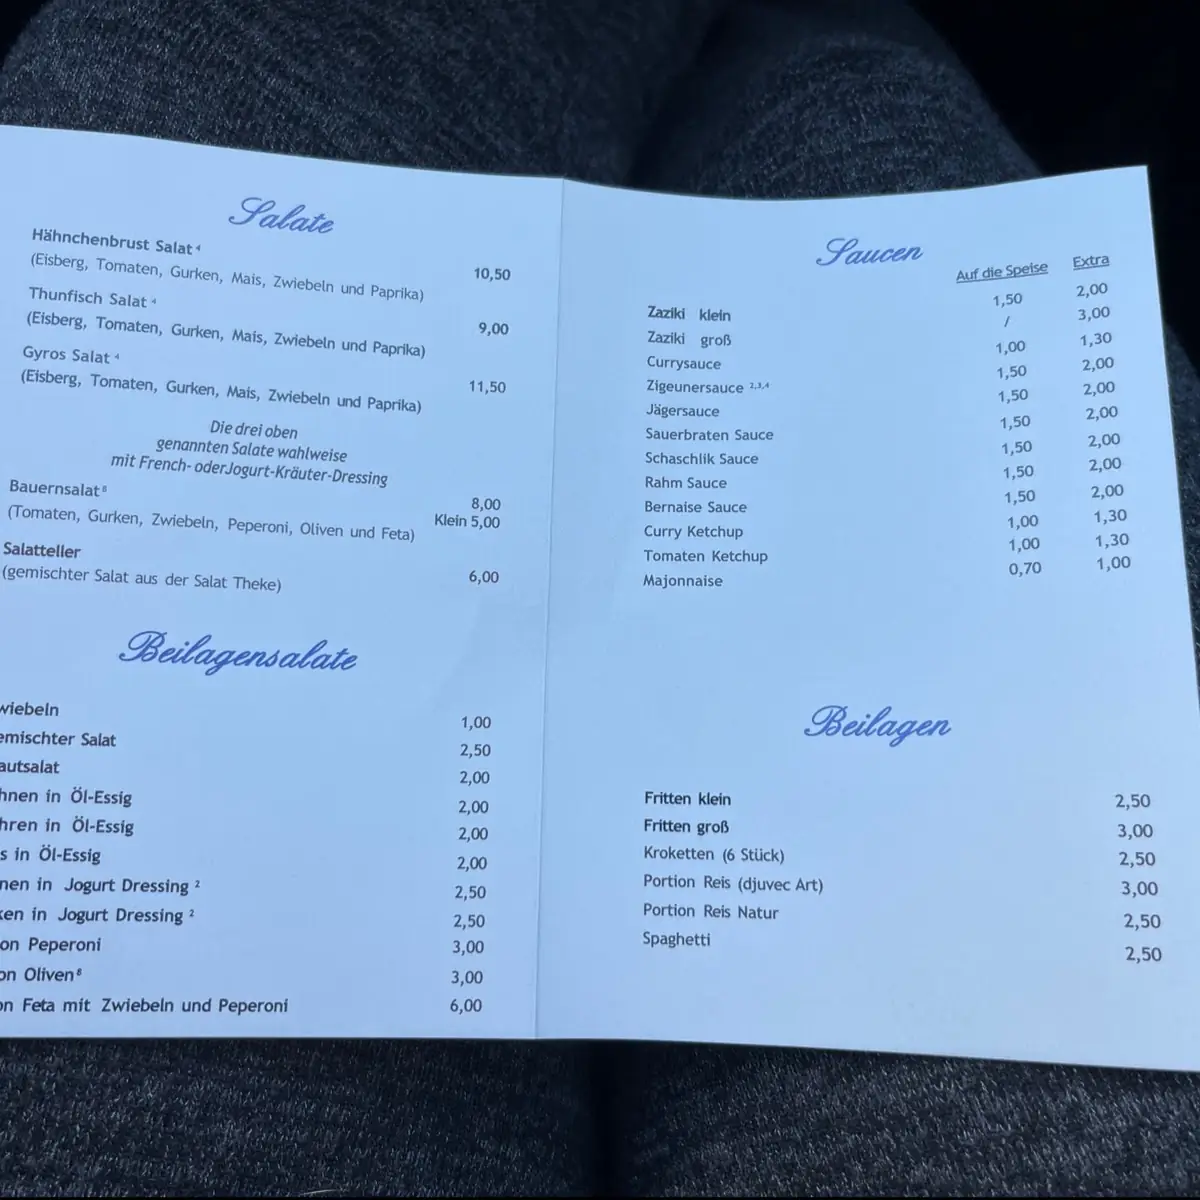 Salate
Hähnchenbrust Salat ⁴
(Eisberg, Tomaten, Gurken, Mais, Zwiebeln und Paprika) 10,50
Thunfisch Salat ⁴
(Eisberg, Tomaten, Gurken, Mais, Zwiebeln und Paprika) 9,00
Gyros Salat ⁴
(Eisberg, Tomaten, Gurken, Mais, Zwiebeln und Paprika) 11,50
Die drei oben
genannten Salate wahlweise
mit French- oderJogurt-Kräuter-Dressing
Bauernsalat ⁸ 8,00
(Tomaten, Gurken, Zwiebeln, Peperoni, Oliven und Feta) Klein 5,00
Salatteller
(gemischter Salat aus der Salat Theke) 6,00
Beilagensalate
wiebeln 1,00
emischter Salat 2,50
autsalat 2,00
hnen in Öl-Essig 2,00
hren in Öl-Essig 2,00
s in Öl-Essig 2,00
nen in Jogurt Dressing ² 2,50
ken in Jogurt Dressing ² 2,50
on Peperoni 3,00
on Oliven ⁸ 3,00
on Feta mit Zwiebeln und Peperoni 6,00
Saucen
Auf die Speise Extra
Zaziki klein 1,50 2,00
Zaziki groß / 3,00
Currysauce 1,00 1,30
Zigeunersauce ²,³,⁴ 1,50 2,00
Jägersauce 1,50 2,00
Sauerbraten Sauce 1,50 2,00
Schaschlik Sauce 1,50 2,00
Rahm Sauce 1,50 2,00
Bernaise Sauce 1,50 2,00
Curry Ketchup 1,00 1,30
Tomaten Ketchup 1,00 1,30
Majonnaise 0,70 1,00
Beilagen
Fritten klein 2,50
Fritten groß 3,00
Kroketten (6 Stück) 2,50
Portion Reis (djuvec Art) 3,00
Portion Reis Natur 2,50
Spaghetti 2,50